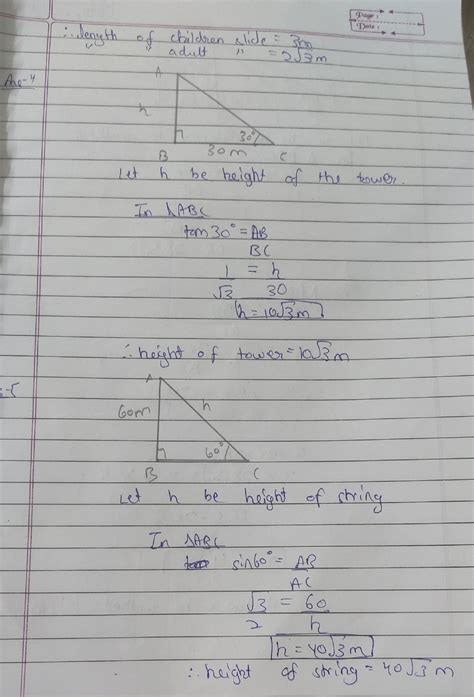 Page:
Date:
∴ length of children slide = 3m
" " adult " = 2√3m
Ans-4
A
h
30°
B 30m C
Let h be height of the tower.
In △ABC
tan30° = AB
BC
1 = h
√3 30
h = 10√3m
∴ height of tower = 10√3m
A
60m h
60°
B C
Let h be height of string
In △ABC
sin60° = AB
AC
√3 = 60
2 h
h = 40√3m
∴ height of string = 40√3m